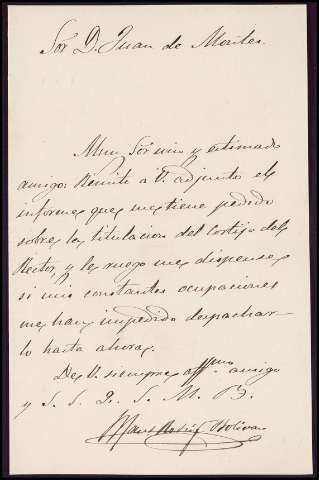 Sor D. Juan de Montes.
Muy Sor mio y estimado
amigo: Remito a V. adjunto el
informe que me tiene pedido
sobre la titulacion del Cortijo del
Rector, y le ruego me dispense
si mis constantes ocupaciones
me han impedido despachar-
lo hasta ahora.
De V. siempre affmo amigo
y S. S. Q. S. M. B.
Bolivar